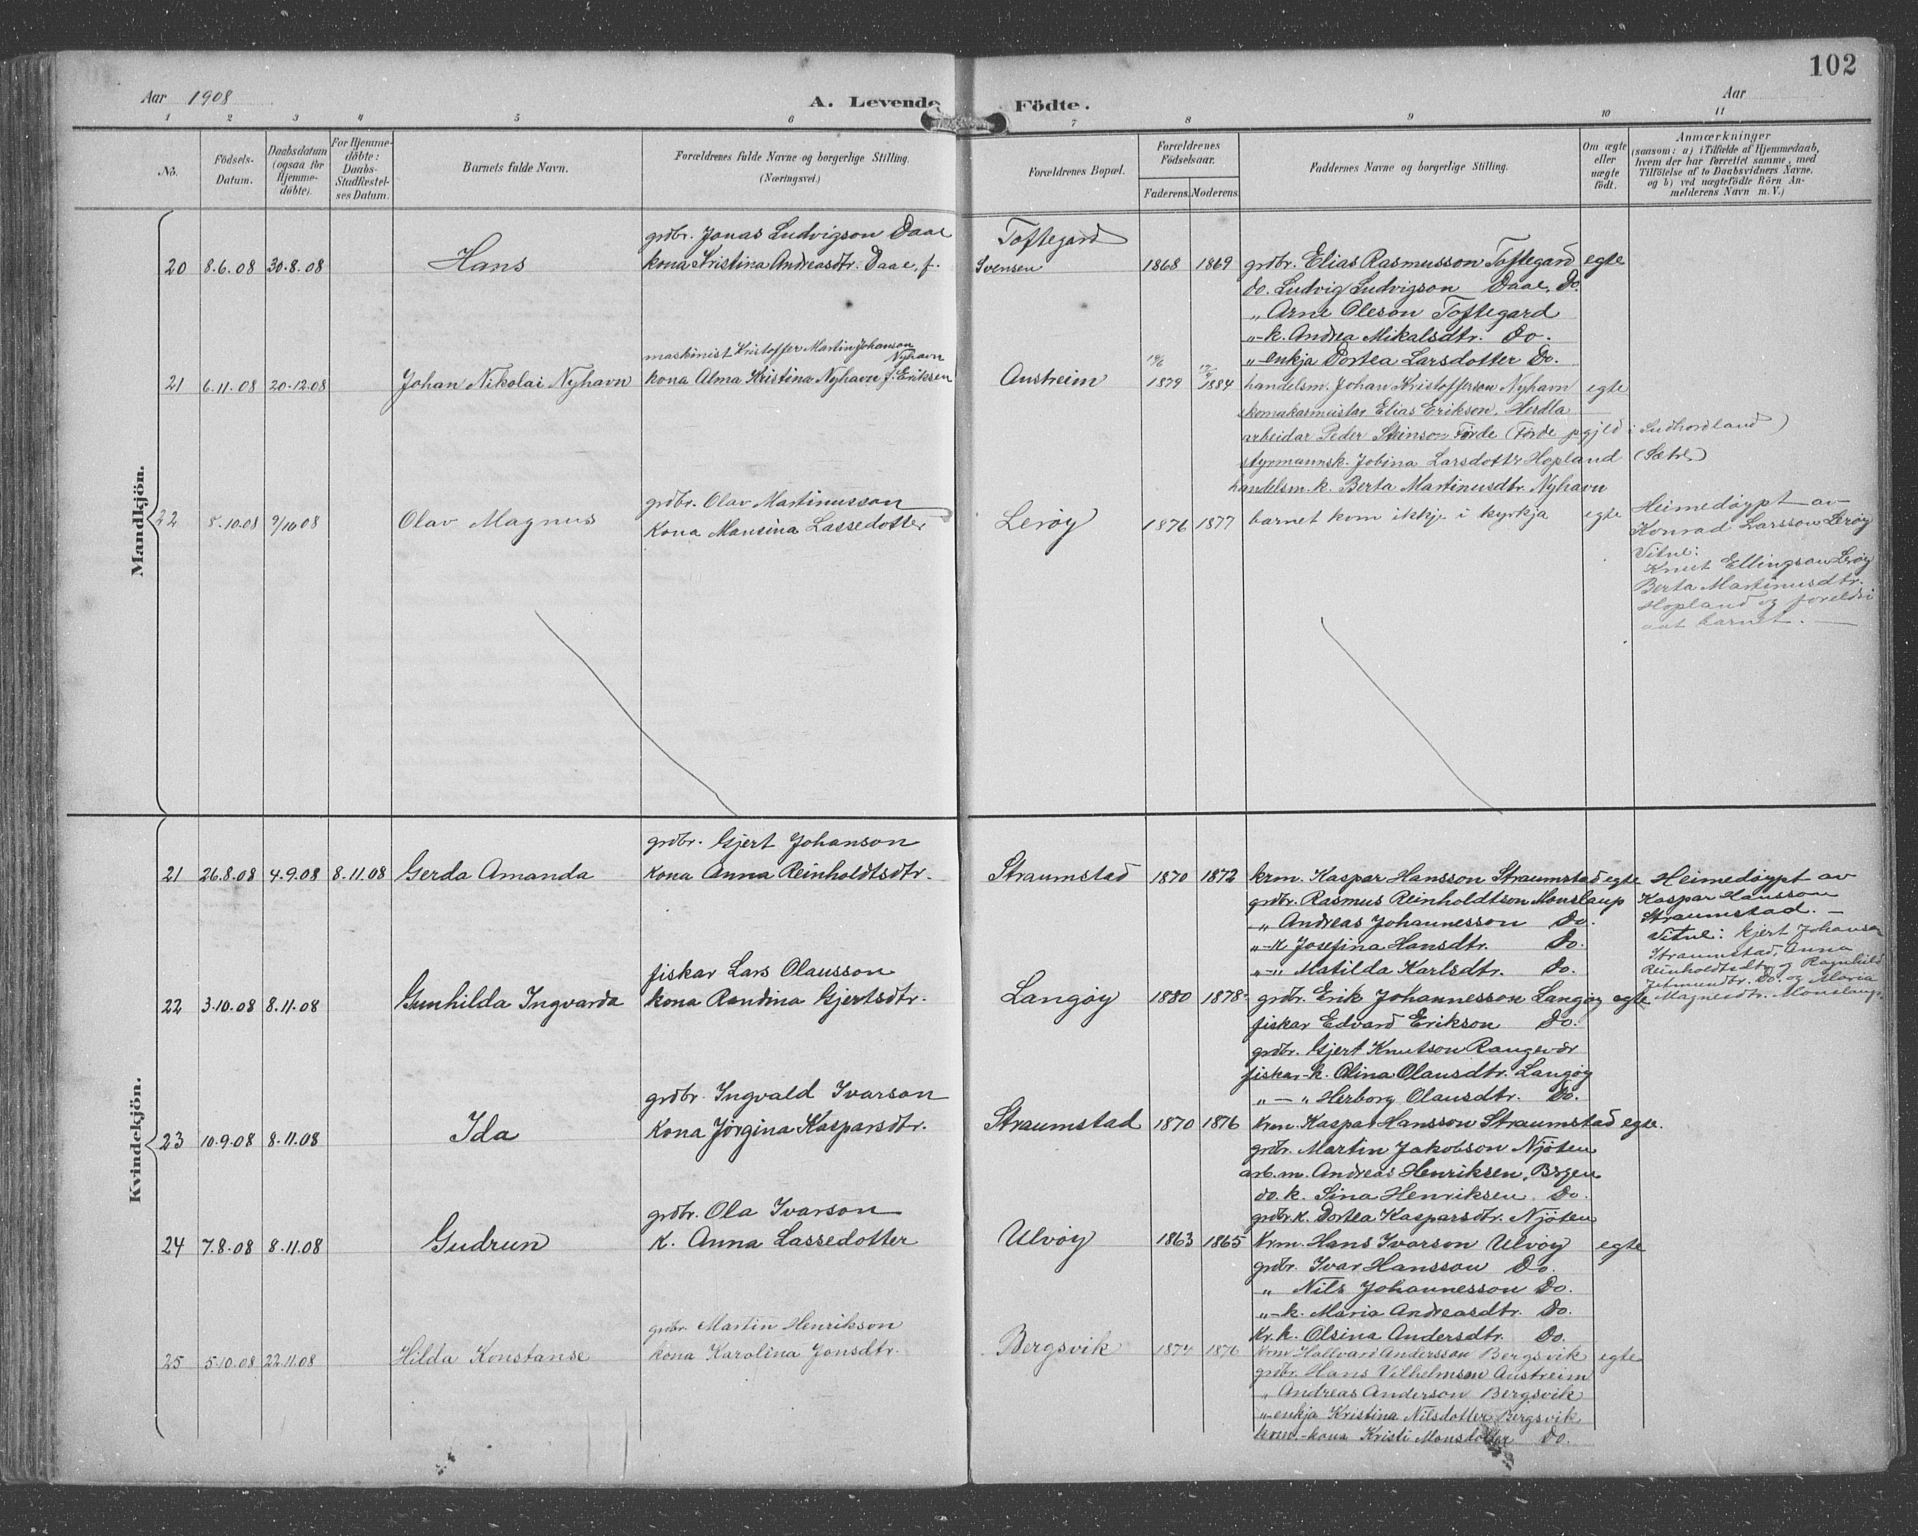 102
Aar 1908
A. Levende Födte.
Aar
1 2 3 4 5 6 7 8 9 10 11
No.
Födsels-Datum.
Daabsdatum (ogsaa for Hjemmedöbte).
For Hjemmedöbte: Daabs-Stadfestelses Datum.
Barnets fulde Navn.
Forældrenes fulde Navne og borgerlige Stilling. (Næringsvei.)
Forældrenes Bopæl.
Forældrenes Födselsaar.
Faderens. Moderens.
Faddernes Navne og borgerlige Stilling.
Om ægte eller uægte födt.
Anmærkninger
(saasom: a) i Tilfælde af Hjemmedaab,
hvem der har forrettet samme, med
Tilföielse af to Daabsvidners Navne,
og b) ved uægtefödte Börn An-
melderens Navn m. V.)
Mandkjön.
grdbr. Jonas Ludvigson Daae Toftegard
20 8.6.08 30.8.08 Hans kona Kristina Andreasdtr. Daae, f. Svensen 1868 1869 grdbr. Elias Rasmusson Toftegard egte
do. Ludvig Ludvigson Daae, Do.
„ Arne Oleson Toftegard
„-k. Andrea Mikalsdtr. Do.
„-enkja Dortea Larsdotter Do.
maskinist Kristoffer Martin Johanson Nyhavn
21 6.11.08 20.12.08 Johan Nikolai Nyhavn kona Alma Kristina Nyhavn f. Eriksen Austreim 1879 1884 handelsm. Johan Kristofferson Nyhavn egte
skomakarmeistar Elias Erikson, Herdla
arbeidar Peder Steinson Förde (Förde pgjld i Sudhordland)
styrmannsk. Jobina Larsdotter Hopland (Sætre)
handelsm. k. Berta Martinusdtr. Nyhavn
grdbr. Olav Martinusson
22 8.10.08 9/10 08 Olav Magnus Kona Mansina Lassedotter Leröy 1876 1877 barnet kom ikkje i kyrkja egte Heimedöypt av
Konrad Larsson Leröy
Vitne:
Knut Ellingson Leröy
Berta Martinusdtr.
Hopland og foreldri
aat barnet. —
Kvindekjön.
grdbr. Gjert Johanson
21 26.8.08 4.9.08 8.11.08 Gerda Amanda Kona Anna Reinholdtsdtr. Straumstad 1870 1872 krm. Kaspar Hansson Straumstad egte Heimedöypt av
grdbr. Rasmus Reinholdtson Monslaup Kaspar Hansson
„ Andreas Johannesson Do. Straumstad. —
„-k Josefina Hansdtr. Do. Vitne: Gjert Johanson
„-„ Matilda Karlsdtr. Do. Straumstad, Anna
Reinholdtsdtr og Ragnhild
Jetmundtr. Do. og Maria
Magnesdtr. Monslaup.
fiskar Lars Olausson
22 3.10.08 8.11.08 Gunhilda Ingvarda kona Randina Gjertsdtr. Langöy 1880 1878 grdbr. Erik Johannesson Langöy egte
fiskar Edvard Erikson Do.
grdbr. Gjert Knutson Rangevær
fiskar-k. Olina Olausdtr. Langöy
„ — „ Herborg Olausdtr. Do.
grdbr. Ingvald Ivarson
23 10.9.08 8.11.08 Ida Kona Jörgina Kasparsdtr. Straumstad 1870 1876 Krm. Kaspar Hansson Straumstad egte.
grdbr. Martin Jakobson Njöten
arb. m. Andreas Henriksen, Brgen
do. k. Sina Henriksen. Do.
grdbr. k. Dortea Kasparsdtr. Njöten
grdbr. Ola Ivarson
24 7.8.08 8.11.08 Gudrun K. Anna Lassedotter Ulvöy 1863 1865 Krm. Hans Ivarson Ulvöy egte
grdbr. Ivar Hansson Do.
„ Nils Johannesson Do.
„-k. Maria Andreasdtr. Do.
Kr. k. Olsina Andersdtr. Do.
grdbr. Martin Henrikson
25 5.10.08 22.11.08 Hilda Konstanse kona Karolina Jonsdtr. Bergsvik 1874 1876 Krm. Hallvard Andersson Bergsvik egte
grdbr. Hans Vilhelmson Austreim
„ Andreas Anderson Bergsvik
„-enkja Kristina Nilsdotter Bergsvik
krm.-kona Kristi Monsdotter Do.